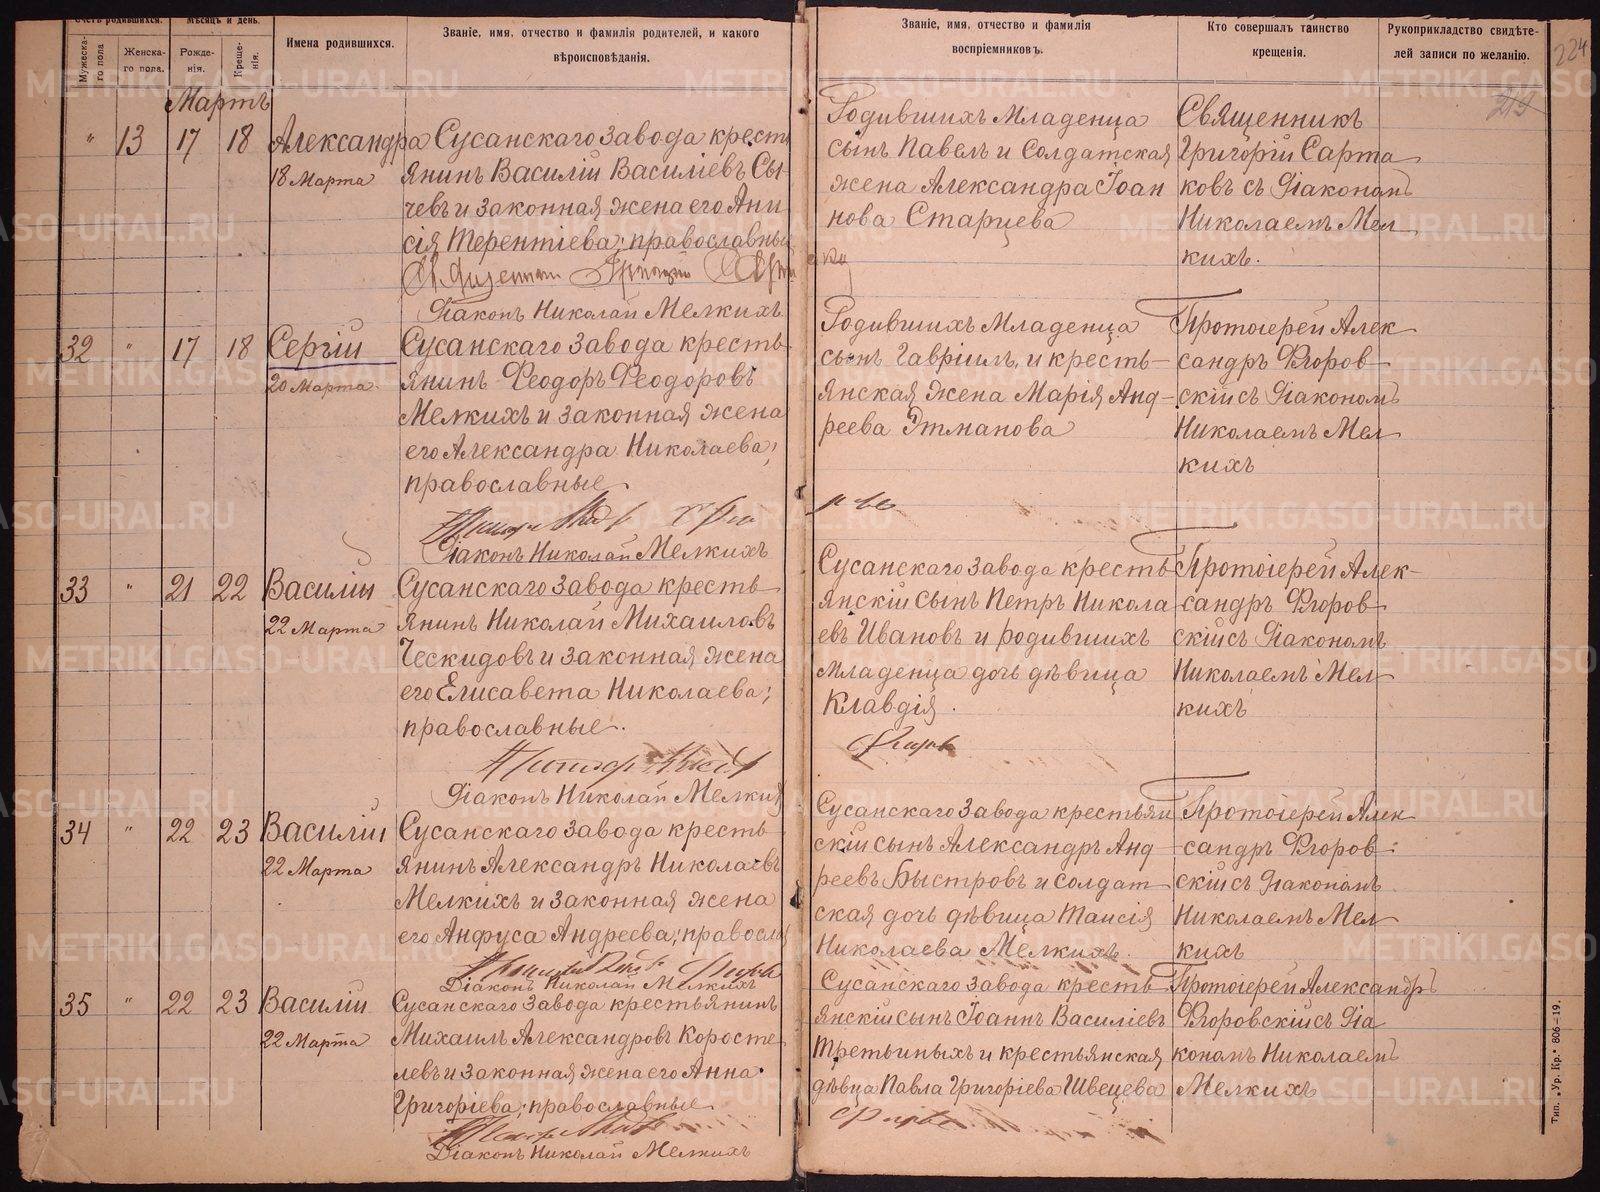 Счетъ родившихся.
Мужеска-
го пола
Женска-
го пола.
Мѣсяцъ и день.
Рожде-
нія.
Креще-
нія.
Имена родившихся.
Званіе, имя, отчество и фамилія родителей, и какого
вѣроисповѣданія.
Званіе, имя, отчество и фамилія
воспріемниковъ.
Кто совершалъ таинство
крещенія.
Рукоприкладство свидѣте-
лей записи по желанію.
224
219
Мартъ
" 13 17 18 Александра
18 Марта
Сусанскаго завода кресть
янинъ Василій Василіевъ Сы-
чевъ и законная жена его Ани
сія Терентіева; православны
Діаконъ Николай Мелкихъ
Родившихъ Младенца
сынъ Павелъ и солдатская
жена Александра Іоан
нова Старцева
Священникъ
Григорій Сарта
ковъ съ Діакономъ
Николаемъ Мел
кихъ.
32 " 17 18 Сергій
20 Марта
Сусанскаго завода кресть-
янинъ Феодоръ Феодоровъ
Мелкихъ и законная жена
его Александра Николаева;
православные
Діаконъ Николай Мелкихъ
Родившихъ Младенца
сынъ Гавріилъ, и кресть-
янская жена Марія Анд-
реева Этманова
Протоіерей Алек
сандръ Флоров-
скій съ Діакономъ
Николаемъ Мел
кихъ
33 " 21 22 Василій
22 Марта
Сусанскаго завода кресть-
янинъ Николай Михаиловъ
Ческидовъ и законная жена
его Елисавета Николаева;
православные.
Діаконъ Николай Мелкихъ
Сусанскаго завода кресть
янскій сынъ Петръ Никола
евъ Ивановъ и родившихъ
младенца дочь дѣвица
Клавдія.
Протоіерей Алек-
сандръ Флоров-
скій съ Діакономъ
Николаемъ Мел
кихъ
34 " 22 23 Василій
22 Марта
Сусанскаго завода кресть
янинъ Александръ Николаевъ
Мелкихъ и законная жена
его Анфуса Андреева; правосла
Діаконъ Николай Мелкихъ
Сусанскаго завода крестьян
скій сынъ Александръ Анд
реевъ Быстровъ и солдат
ская дочь дѣвица Таисія
Николаева Мелкихъ.
Протоіерей Алек
сандръ Флоров-
скій съ Діакономъ
Николаемъ Мел
кихъ
35 " 22 23 Василій
22 Марта
Сусанскаго завода крестьянинъ
Михаилъ Александровъ Коросте
левъ и законная жена его Анна
Григоріева; православные
Діаконъ Николай Мелкихъ
Сусанскаго завода кресть
янскій сынъ Іоаннъ Василіевъ
Третьиныхъ и крестьянская
дѣвца Павла Григоріева Швецева
Протоіерей Александръ
Флоровскій съ Діа
кономъ Николаемъ
Мелкихъ
Тип. „Ур. Кр.“ 806—19.
METRIKI.GASO-URAL.RU